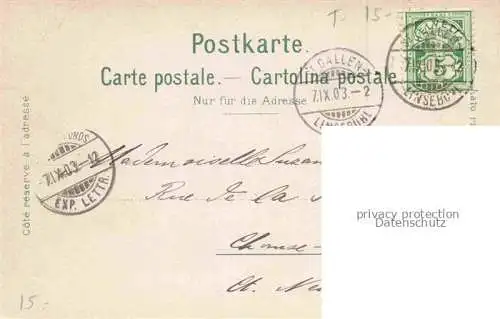 T. 15-
Postkarte.
Carte postale. — Cartolina postale
Nur für die Adresse
Côté réservé à l'adresse
ST. GALLEN
7.IX.03.-2
LINSEBÜHL
5
LINSEBÜHL
7.IX.03.-12
EXP. LETTR.
Mademoiselle Suzan
Rue de la
Chaux-
Ct. Ne
privacy protection
Datenschutz
15.-